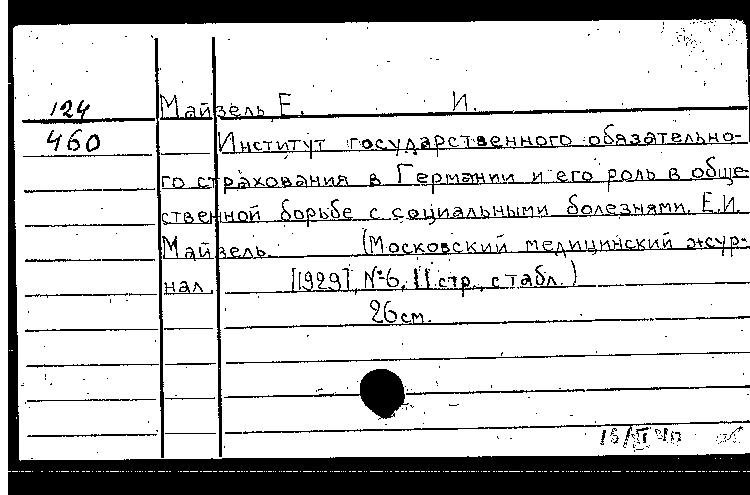 124 Майзель, Е. И.
460 Институт государственного обязательно-
го страхования в Германии и его роль в обще-
ственной борьбе с социальными болезнями. Е.И.
Майзель. (Московский медицинский жур-
нал, [1929], №6, 11 стр., с табл.)
26 см.